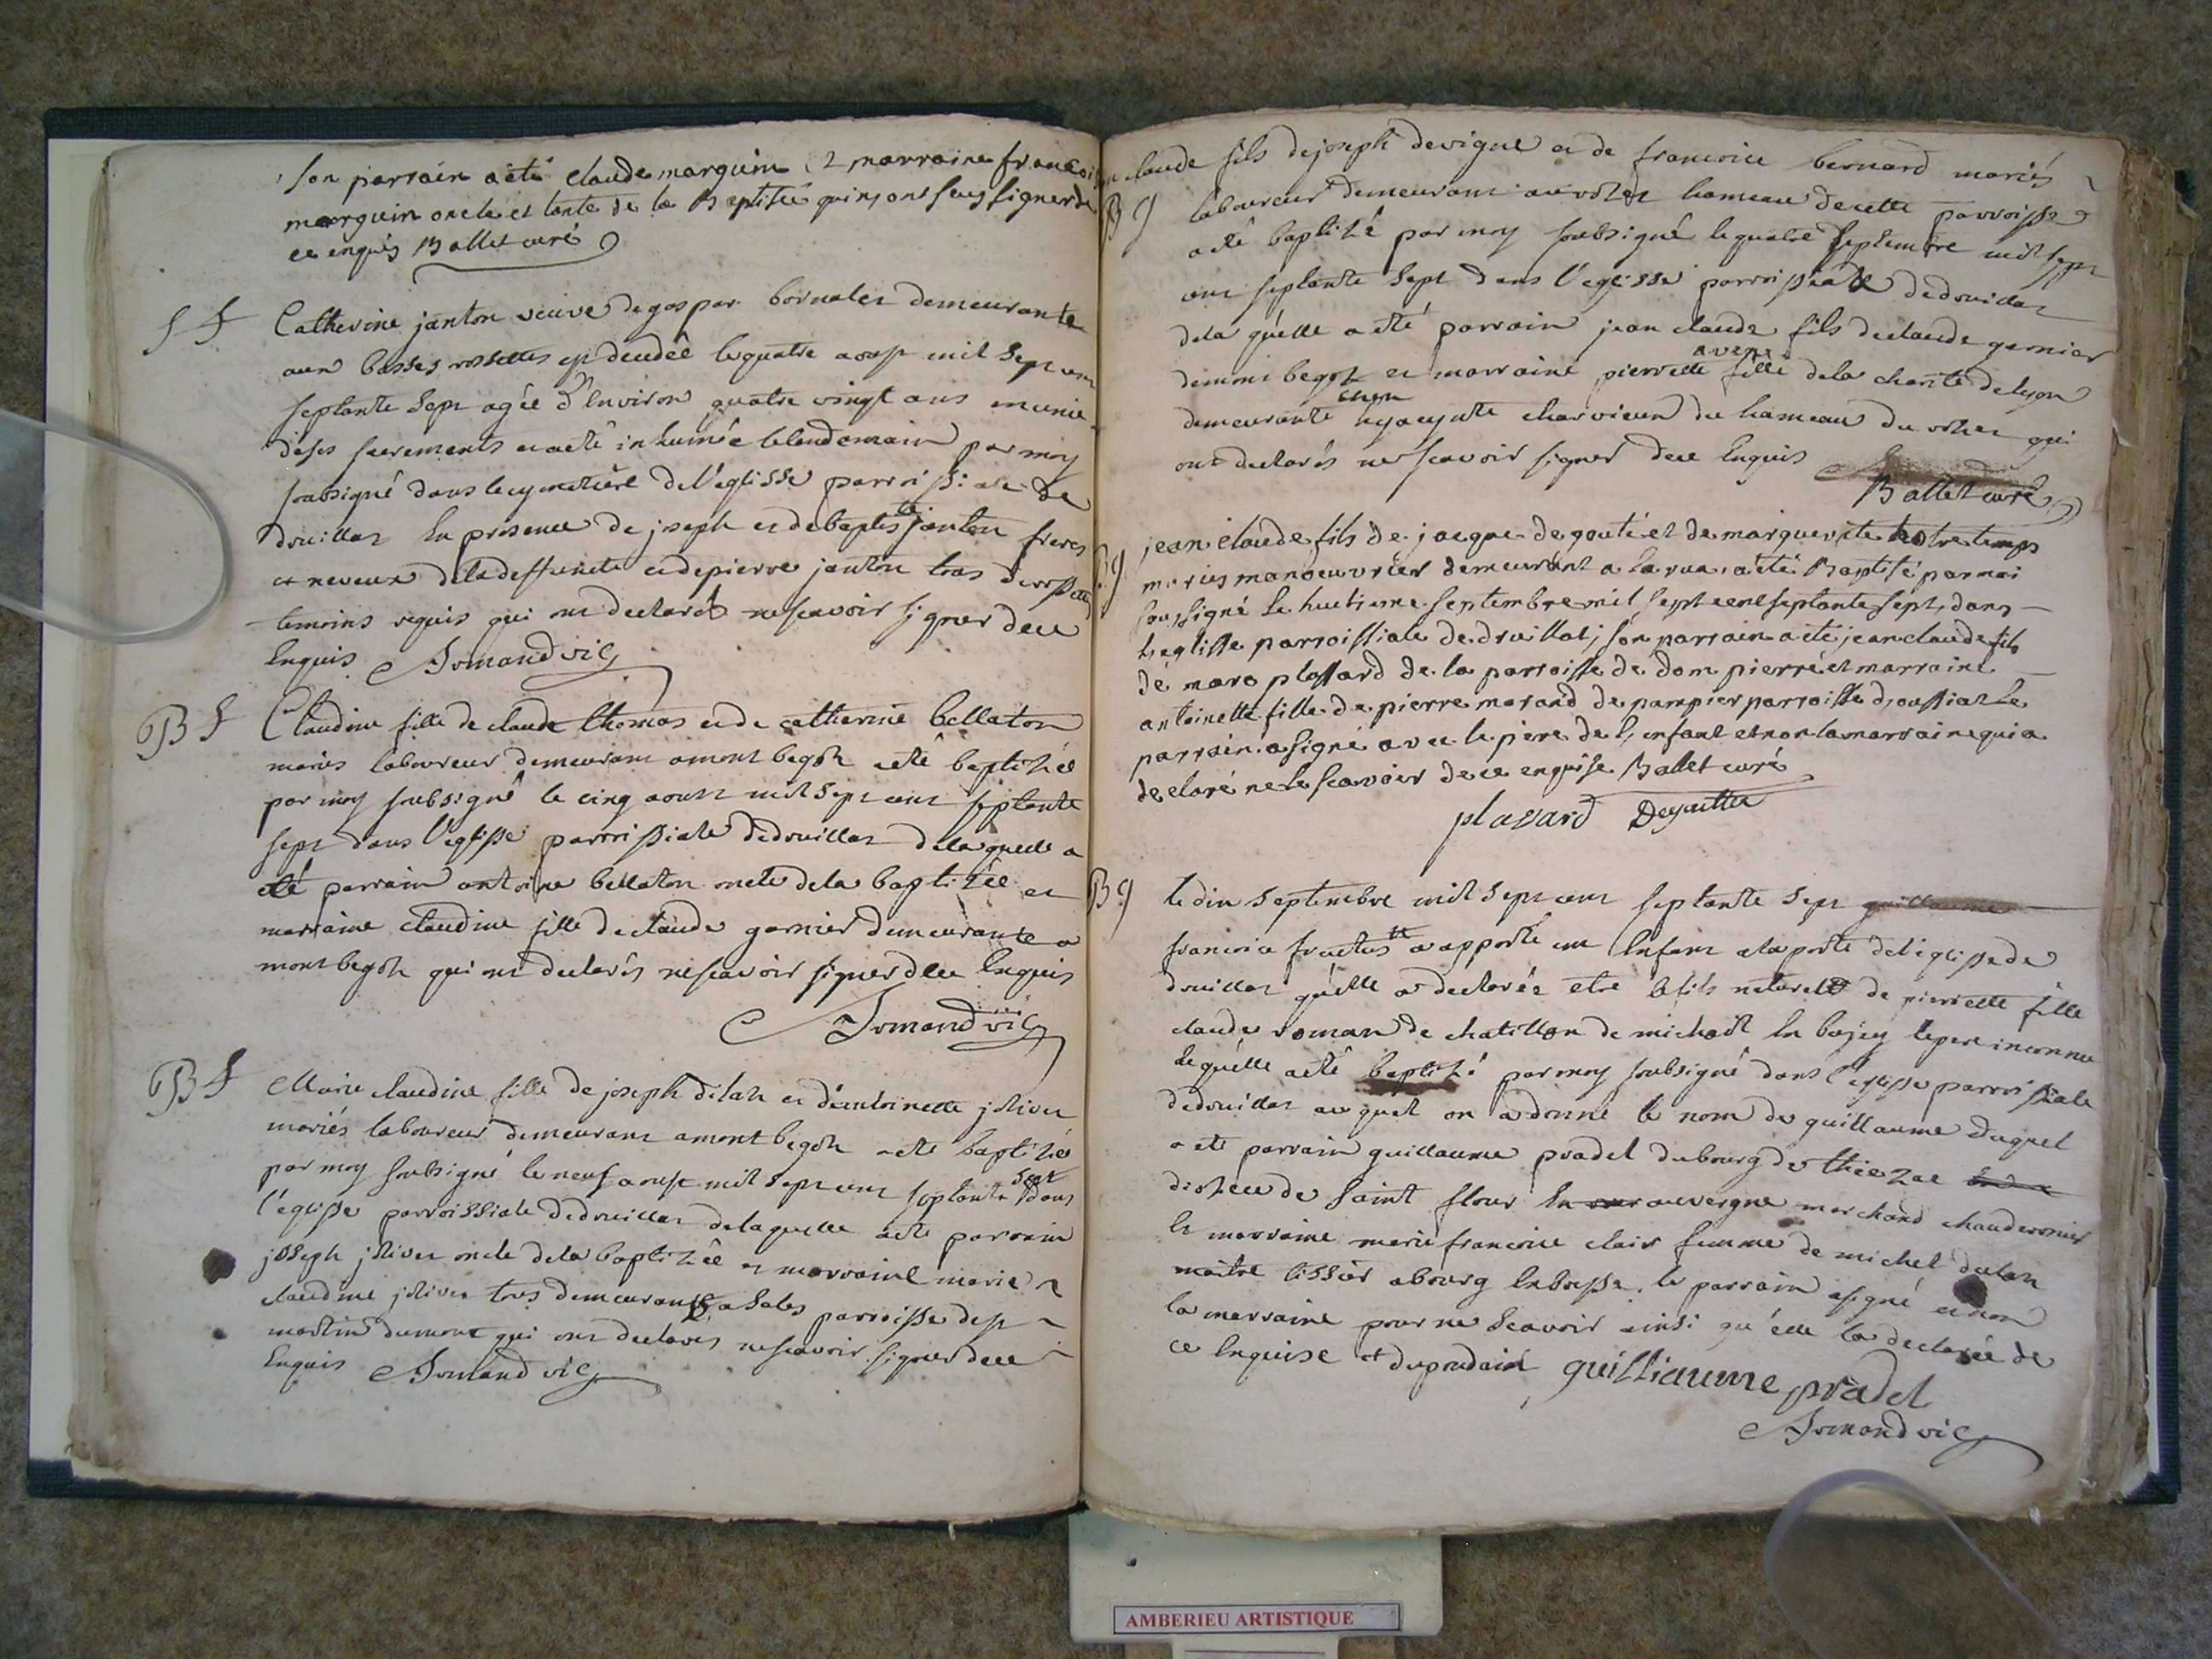 son parrain a été claude marguin et marraine francoi
marguin oncle et tante de la Baptisée qui n'ont sceu signer de
ce enquis Ballet curé
S
Catherine janton veuve de gaspar bornater demeurante
aux basses rossettes est deudée le quatre aoust mil sept cent
septante sept agée d'environ quatre vingt ans munie
de ses sacrements et a eté inhumée le lendemain par moy
soubsigné dans le cymetiere de l'eglisse parroissiale de
drouillat En presence de joseph et de baptiste janton freres
et neveux de la deffuncte et de pierre janton tous de rossettes
temoins requis qui ont declarés ne scavoir signer de ce
Enquis Armand vic
B
Claudine fille de claude thomas et de catherine bellaton
mariés laboureur demeurant a mont begoz a eté baptizée
par moy soubsigné le cinq aoust mil sept cent septante
sept dans l'eglisse parroissiale de drouillat de laquelle a
eté parrain antoine bellaton oncle de la baptizée et
marraine claudine fille de claude garnier demeurante a
mont begoz qui ont declarés ne scavoir signer de ce Enquis
Armand vic
B
Marie claudine fille de joseph dilas et d'antoinette jolivet
mariés laboureur demeurant a mont begoz a eté baptizée
par moy soubsigné le neuf aoust mil sept cent septante sept dans
l'eglisse parroissiale de drouillat de laquelle a eté parrain
joseph jolivet oncle de la baptizée et marraine marie
claudine jolivet tous demeurants a sales parroisse de st
martin du mont qui ont declarés ne scavoir signer de ce
Enquis Armand vic
claude fils de joseph devigne et de francoise bernard mariés
B 9
laboureur demeurant au hameau de cette parroisse
a eté baptizé par moy soubsigné le quatre septembre mil sept
cent septante sept dans l'eglisse parroissiale de drouillat
de la quelle a eté parrain jean claude fils de claude garnier
de mont begoz et marraine pierrette fille de la charité de lyon
avene
demeurante chez hyacynte charvieux du hameau du qui
ont declarés ne scavoir signer de ce Enquis
Ballet curé
9
jean claude fils de jacque de gouté et de marguerite
mariés manoeuvrier demeurant a la rua, a été Baptisé par moi
soussigné le huitieme septembre mil sept cent septante sept, dans
l'eglisse parroissiale de druillat; son parrain a été jean claude fils
de marc plassard de la parroisse de dom pierre et marraine
antoinette fille de pierre morand de pampier parroisse d'oussiat le
parrain a signé avec le pere de l'enfant et non la marraine qui a
declaré ne le scavoir de ce enquise Ballet curé
plassard Degoutte
B 9
le dix septembre mil sept cent septante sept guillaume
francoise a apporté un Enfant a la porte de l'eglisse de
drouillat qu'elle a declarée etre le fils naturel de pierrette fille
claude roman de chatillon de michail En bugey le pere inconnu
lequelle a eté baptizé par moy soubsigné dans l'eglisse parroissiale
de drouillat au quel on a donné le nom de guillaume duquel
a eté parrain guillaume pradel du bourg de thiezac
diocese de saint flour En auvergne marchand chauderonier
la marraine marie francoise clair femme de michel
maitre tissier a bourg En bresse. le parrain a signé et non
la marraine pour ne scavoir ainsi qu'elle la declarée de
ce Enquise guilliaume pradel
Armand vic
AMBERIEU ARTISTIQUE